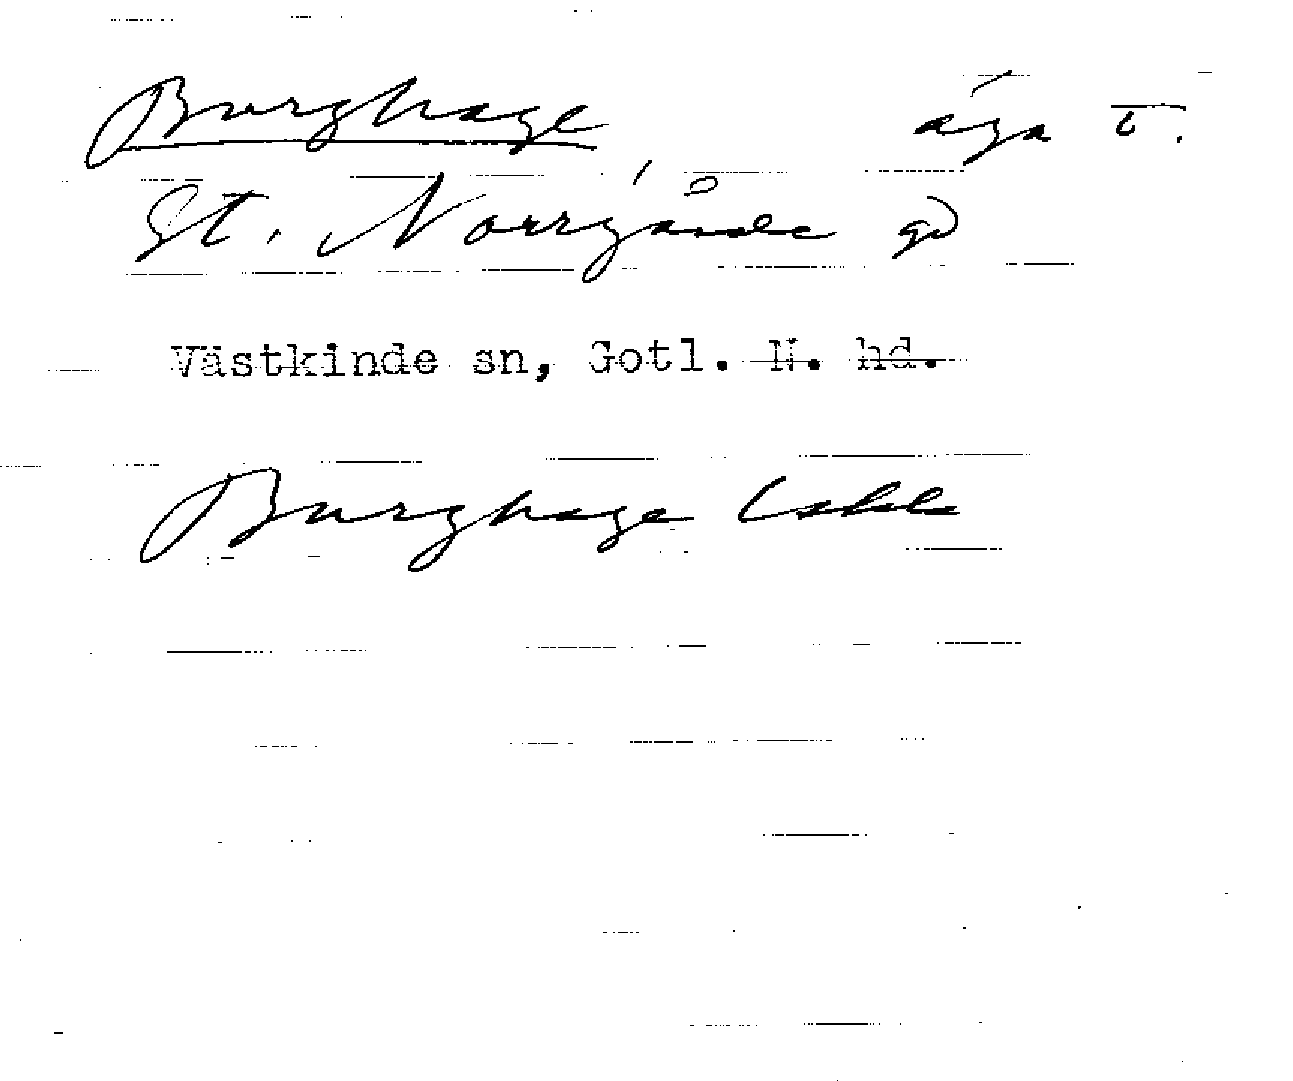 Burghage
St. Norrgårde gd
Västkinde sn, Gotl. N. hd.
Burghage